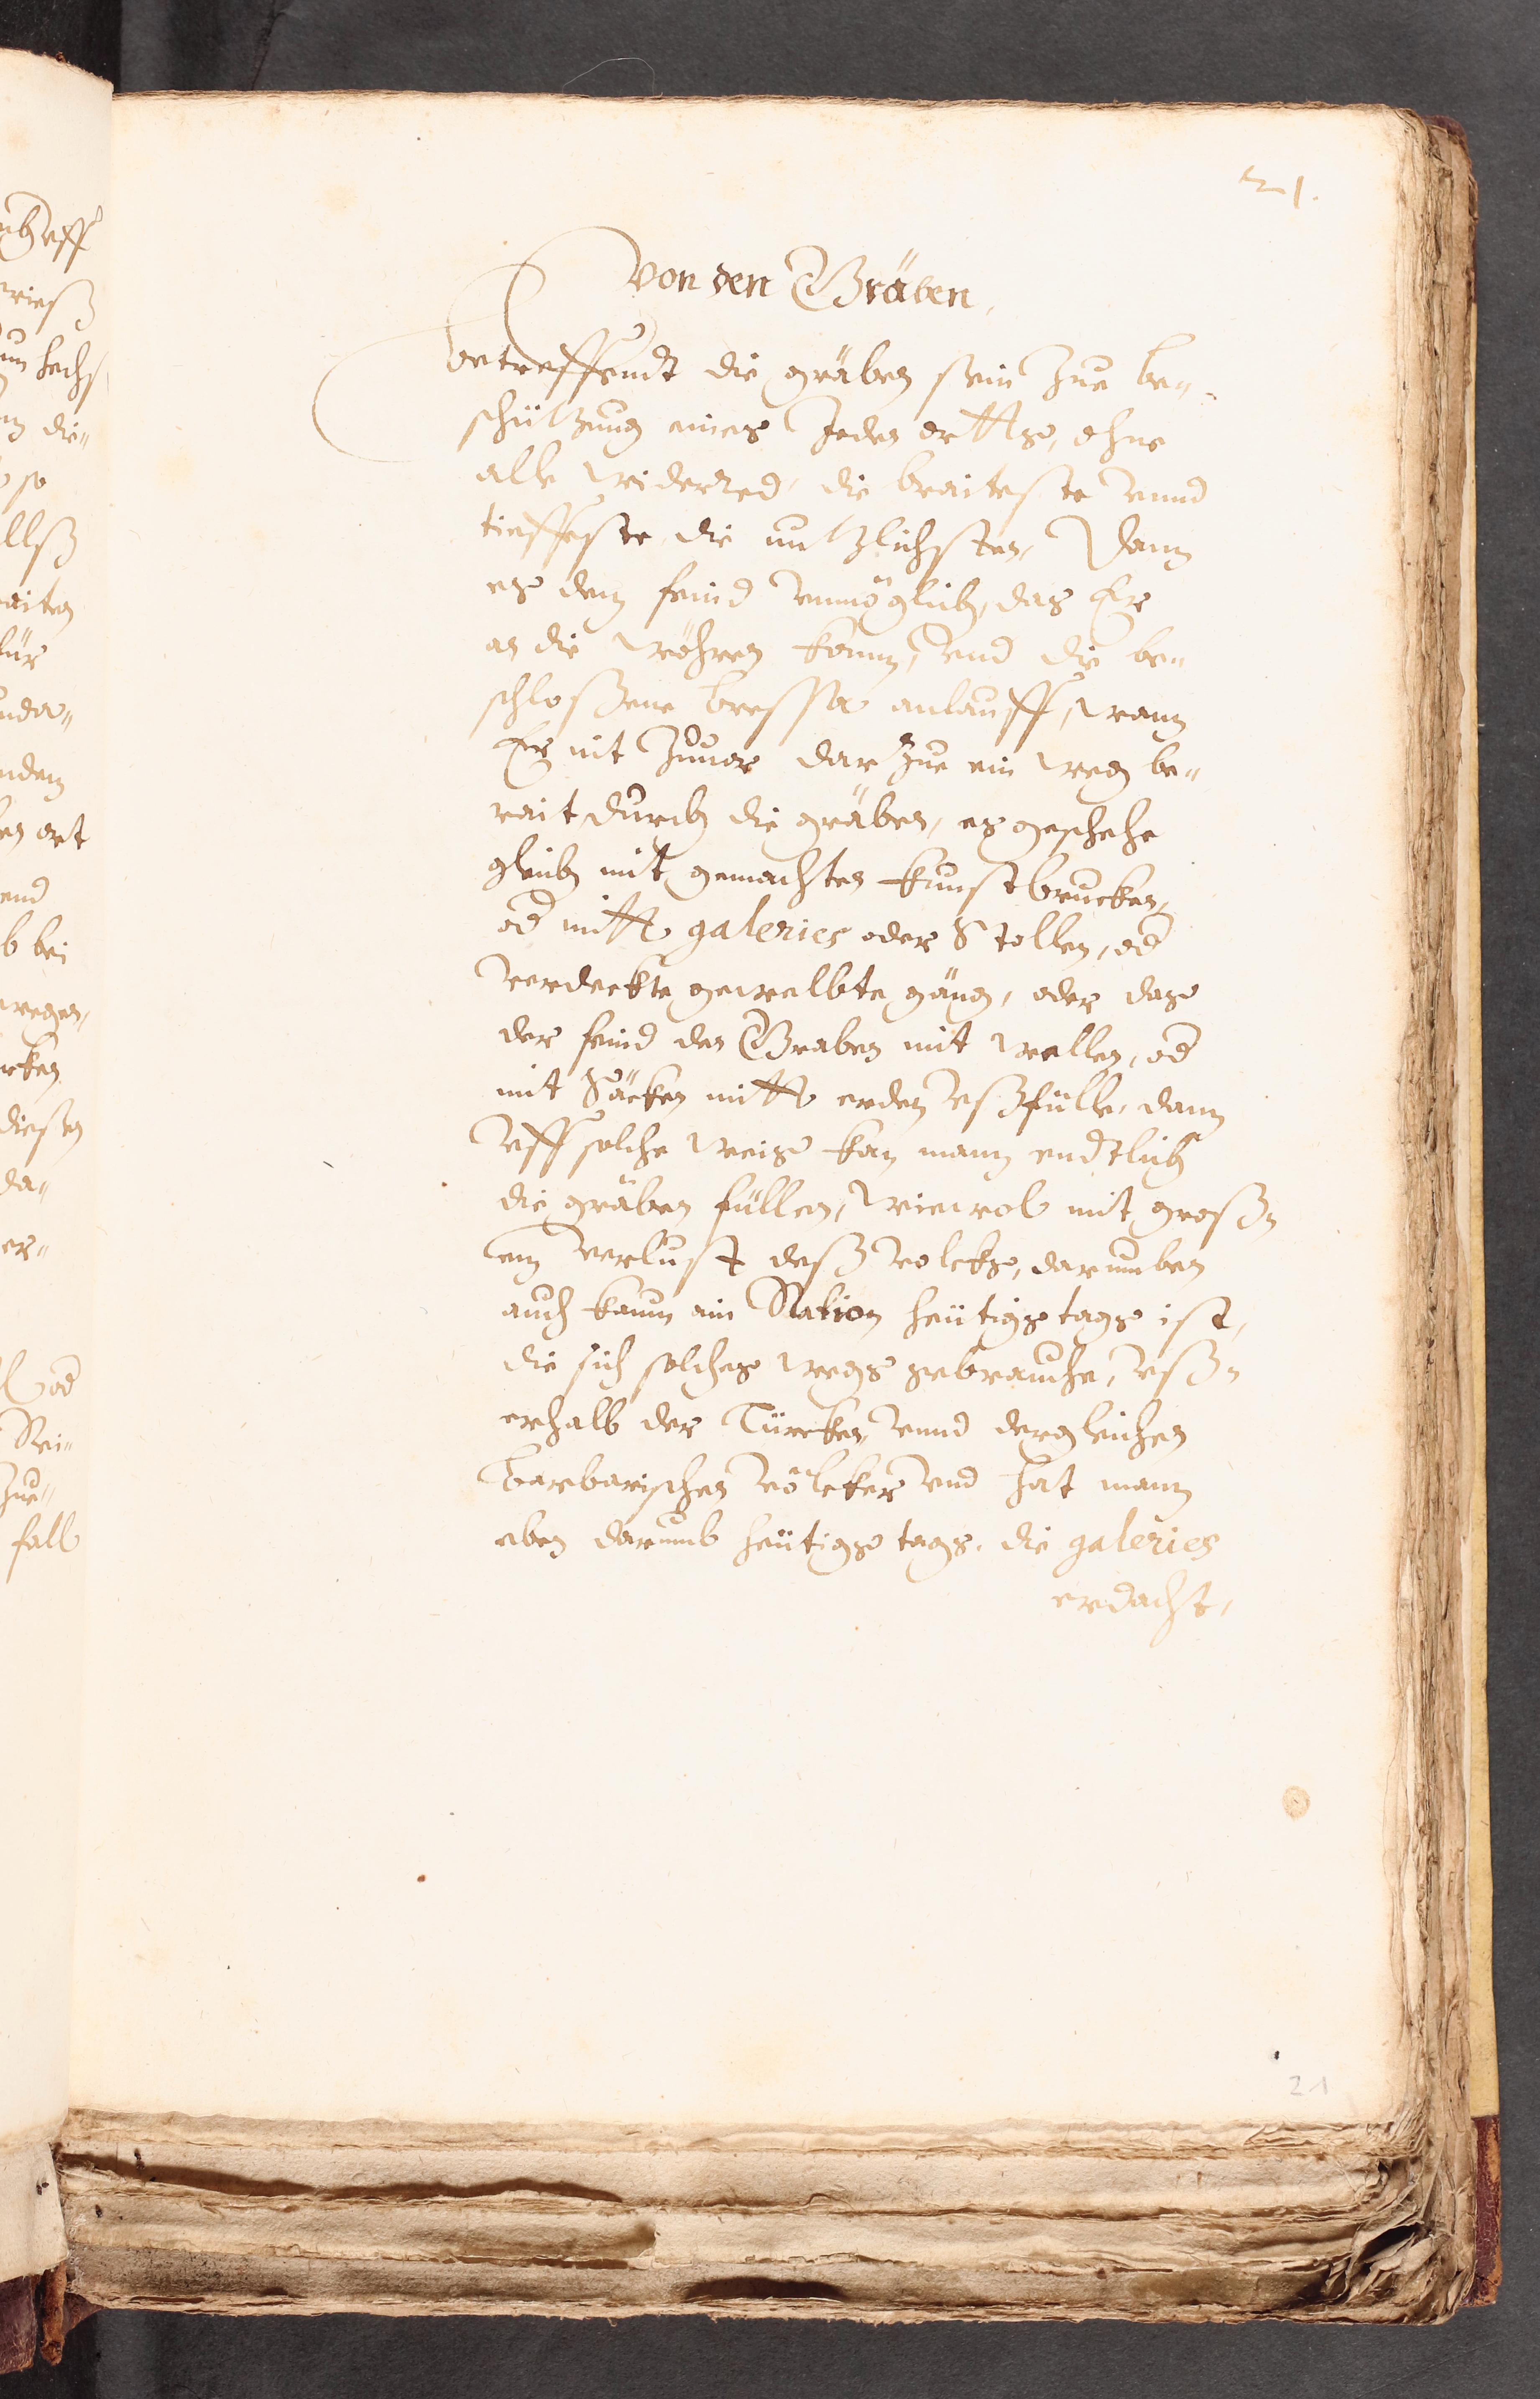 21.
Von den Gräben,
Betreffendt die gräben sein zue be-
schützung eines Jeden ortts, ohne
alle widerred, die braiteste vnnd
tieffeste die nutzlichsten, Dann
es dem feind vnmöglich, das Er
an die wöhren komm, vnd die be-
schloßene bressa anlauff, wann
Er nit zuuor dar zue ein weg be-
rait durch die gräben, es geschehe
gleich mit gemachten kunstbrucken,
od mitt galeries oder Stollen, od
verdeckte gewelbte gäng, oder das
der feind den Graben mit wellen, od
mit Säcken mitt erden vßfülle, dann
vff solche weis kan mann endtlich
die gräben füllen, wiewol mit groß-
em verlust deß volcks, darumben
auch kaum ein Nation heütigs tags ist,
die sich solches wegs gebrauche, vß-
erhalb der Türcken, vnnd dergleichen
barbarischen völcker vnd hat mann
eben darumb heütigs tags, die galeries
erdacht,
21